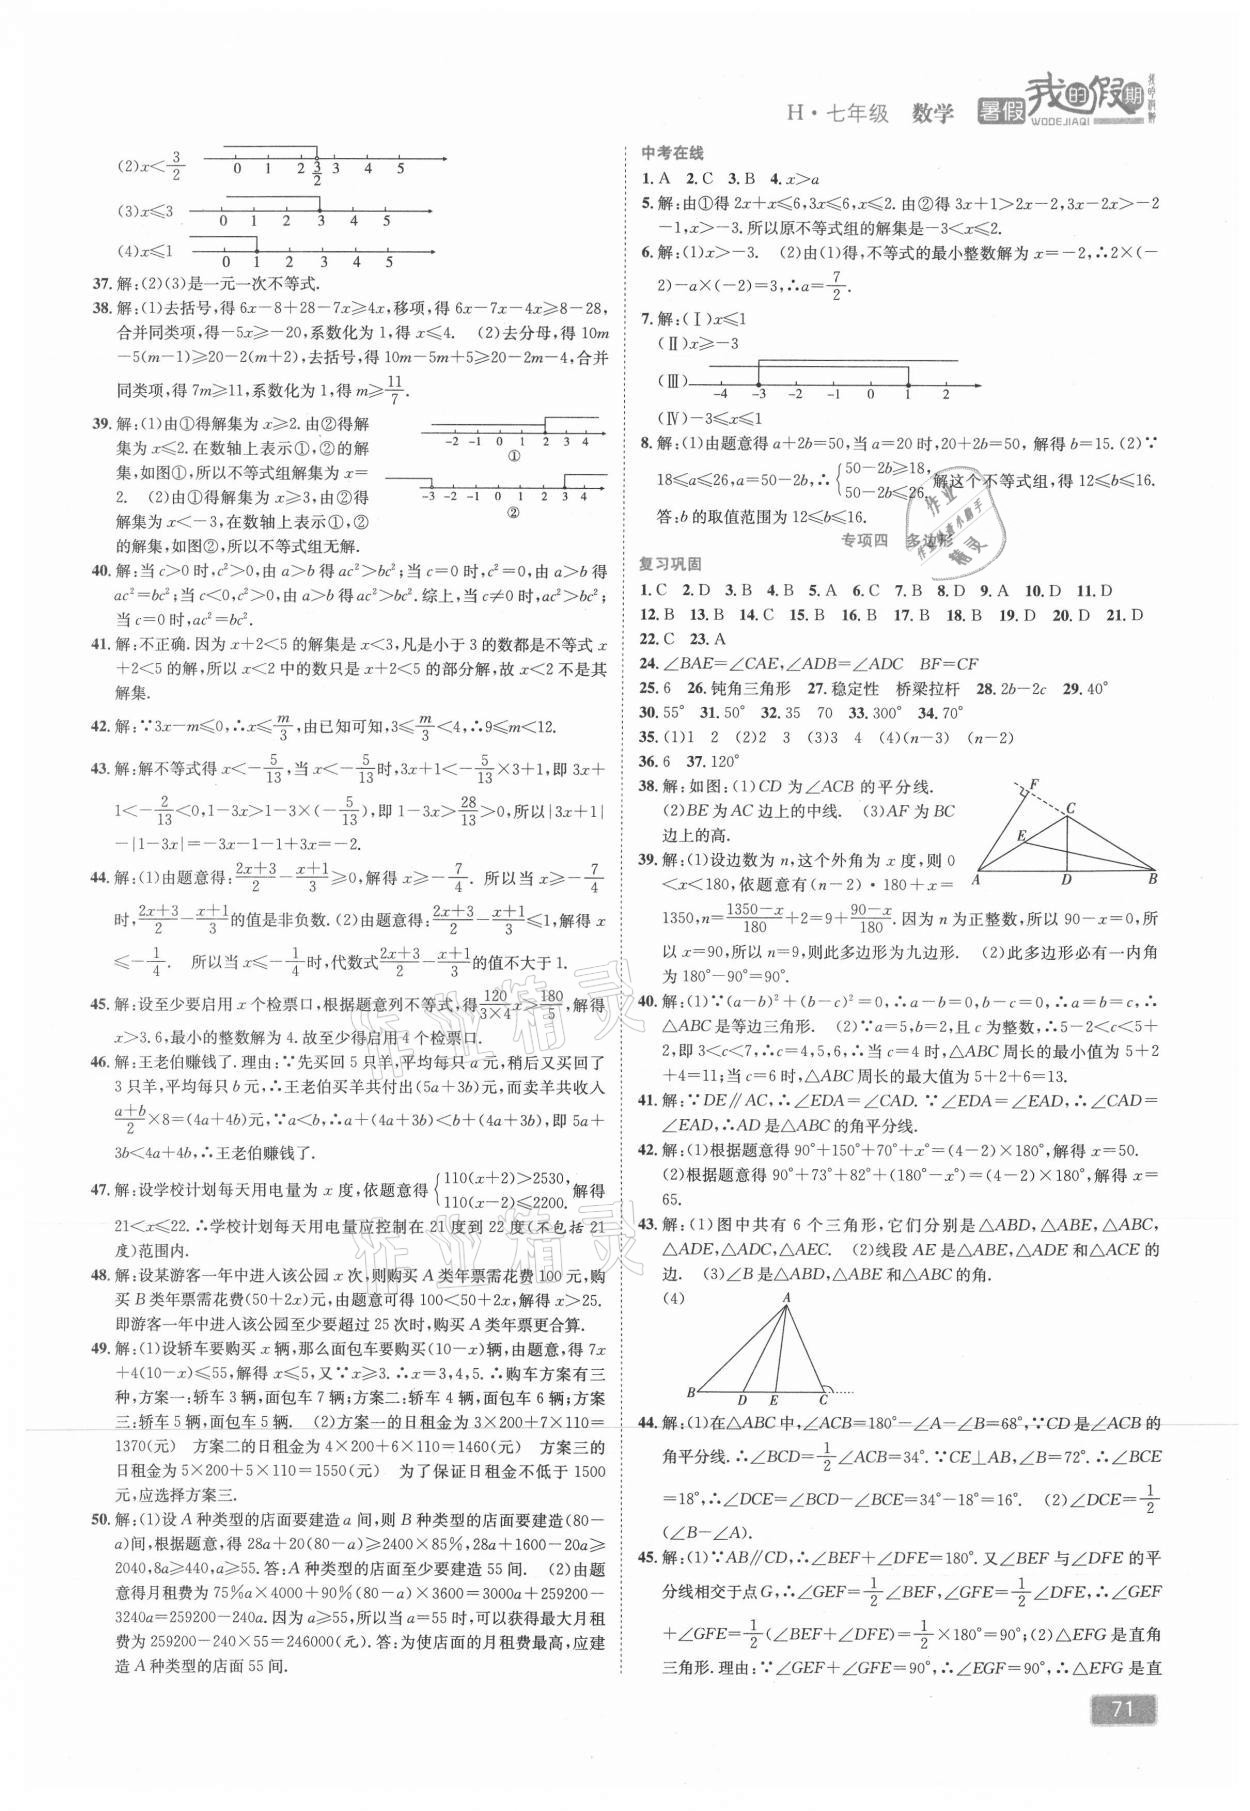 H·七年级 数学 暑假 我的假期
WODEJIAQI
(2)x<3/2 0 1 2 3/2 3 4 5
(3)x⩽3 0 1 2 3 4 5
(4)x⩽1 0 1 2 3 4 5
37.解:(2)(3)是一元一次不等式.
38.解:(1)去括号,得6x−8+28−7x⩾4x,移项,得6x−7x−4x⩾8−28,
合并同类项,得−5x⩾−20,系数化为1,得x⩽4. (2)去分母,得10m
−5(m−1)⩾20−2(m+2),去括号,得10m−5m+5⩾20−2m−4,合并
同类项,得7m⩾11,系数化为1,得m⩾11/7.
39.解:(1)由①得解集为x⩾2.由②得解
集为x⩽2.在数轴上表示①,②的解
集,如图①,所以不等式组解集为x=
2. (2)由①得解集为x⩾3,由②得
解集为x<−3,在数轴上表示①,②
的解集,如图②,所以不等式组无解.
-2 -1 0 1 2 3 4
①
-3 -2 -1 0 1 2 3 4
②
40.解:当c>0时,c²>0,由a>b得ac²>bc²;当c=0时,c²=0,由a>b得
ac²=bc²;当c<0,c²>0,由a>b得ac²>bc².综上,当c≠0时,ac²>bc²;
当c=0时,ac²=bc².
41.解:不正确.因为x+2<5的解集是x<3,凡是小于3的数都是不等式x
+2<5的解,所以x<2中的数只是x+2<5的部分解,故x<2不是其
解集.
42.解:∵3x−m⩽0,∴x⩽m/3,由已知可知,3⩽m/3<4,∴9⩽m<12.
43.解:解不等式得x<−5/13,当x<−5/13时,3x+1<−5/13×3+1,即3x+
1<−2/13<0,1−3x>1−3×(−5/13),即1−3x>28/13>0,所以|3x+1|
−|1−3x|=−3x−1−1+3x=−2.
44.解:(1)由题意得:(2x+3)/2−(x+1)/3⩾0,解得x⩾−7/4. 所以当x⩾−7/4
时,(2x+3)/2−(x+1)/3的值是非负数.(2)由题意得:(2x+3)/2−(x+1)/3⩽1,解得x
⩽−1/4. 所以当x⩽−1/4时,代数式(2x+3)/2−(x+1)/3的值不大于1.
45.解:设至少要启用x个检票口,根据题意列不等式,得120/(3×4)x>180/5,解得
x>3.6,最小的整数解为4.故至少得启用4个检票口.
46.解:王老伯赚钱了.理由:∵先买回5只羊,平均每只a元,稍后又买回了
3只羊,平均每只b元,∴王老伯买羊共付出(5a+3b)元,而卖羊共收入
(a+b)/2×8=(4a+4b)元,∵a<b,∴a+(4a+3b)<b+(4a+3b),即5a+
3b<4a+4b,∴王老伯赚钱了.
47.解:设学校计划每天用电量为x度,依题意得{110(x+2)>2530, 110(x−2)⩽2200. 解得
21<x⩽22.∴学校计划每天用电量应控制在21度到22度(不包括21
度)范围内.
48.解:设某游客一年中进入该公园x次,则购买A类年票需花费100元,购
买B类年票需花费(50+2x)元,由题意可得100<50+2x,解得x>25.
即游客一年中进入该公园至少要超过25次时,购买A类年票更合算.
49.解:(1)设轿车要购买x辆,那么面包车要购买(10−x)辆,由题意,得7x
+4(10−x)⩽55,解得x⩽5,又∵x⩾3.∴x=3,4,5.∴购车方案有三
种,方案一:轿车3辆,面包车7辆;方案二:轿车4辆,面包车6辆;方案
三:轿车5辆,面包车5辆. (2)方案一的日租金为3×200+7×110=
1370(元) 方案二的日租金为4×200+6×110=1460(元) 方案三的
日租金为5×200+5×110=1550(元) 为了保证日租金不低于1500
元,应选择方案三.
50.解:(1)设A种类型的店面要建造a间,则B种类型的店面要建造(80−
a)间,根据题意,得28a+20(80−a)⩾2400×85%,28a+1600−20a⩾
2040,8a⩾440,a⩾55.答:A种类型的店面至少要建造55间. (2)由题
意得月租费为75%a×4000+90%(80−a)×3600=3000a+259200−
3240a=259200−240a.因为a⩾55,所以当a=55时,可以获得最大月租
费为259200−240×55=246000(元).答:为使店面的月租费最高,应建
造A种类型的店面55间.
中考在线
1.A 2.C 3.B 4.x>a
5.解:由①得2x+x⩽6,3x⩽6,x⩽2.由②得3x+1>2x−2,3x−2x>−2
−1,x>−3.所以原不等式组的解集是−3<x⩽2.
6.解:(1)x>−3. (2)由(1)得,不等式的最小整数解为x=−2,∴2×(−
2)−a×(−2)=3,∴a=7/2.
7.解:(Ⅰ)x⩽1
(Ⅱ)x⩾−3
(Ⅲ) -4 -3 -2 -1 0 1 2
(Ⅳ)−3⩽x⩽1
8.解:(1)由题意得a+2b=50,当a=20时,20+2b=50,解得b=15.(2)∵
18⩽a⩽26,a=50−2b,∴{50−2b⩾18, 50−2b⩽26. 解这个不等式组,得12⩽b⩽16.
答:b的取值范围为12⩽b⩽16.
专项四 多边形
复习巩固
1.C 2.D 3.B 4.B 5.A 6.C 7.B 8.D 9.A 10.D 11.D
12.B 13.B 14.C 15.B 16.B 17.B 18.B 19.D 20.D 21.D
22.C 23.A
24.∠BAE=∠CAE,∠ADB=∠ADC BF=CF
25.6 26.钝角三角形 27.稳定性 桥梁拉杆 28.2b−2c 29.40°
30.55° 31.50° 32.35 70 33.300° 34.70°
35.(1)1 2 (2)2 3 (3)3 4 (4)(n−3) (n−2)
36.6 37.120°
38.解:如图:(1)CD为∠ACB的平分线.
(2)BE为AC边上的中线. (3)AF为BC
边上的高.
F C E A D B
39.解:(1)设边数为n,这个外角为x度,则0
<x<180,依题意有(n−2)·180+x=
1350,n=(1350−x)/180+2=9+(90−x)/180.因为n为正整数,所以90−x=0,所
以x=90,所以n=9,则此多边形为九边形. (2)此多边形必有一内角
为180°−90°=90°.
40.解:(1)∵(a−b)²+(b−c)²=0,∴a−b=0,b−c=0,∴a=b=c,∴
△ABC是等边三角形. (2)∵a=5,b=2,且c为整数,∴5−2<c<5+
2,即3<c<7,∴c=4,5,6,∴当c=4时,△ABC周长的最小值为5+2
+4=11;当c=6时,△ABC周长的最大值为5+2+6=13.
41.解:∵DE∥AC,∴∠EDA=∠CAD.∵∠EDA=∠EAD,∴∠CAD=
∠EAD,∴AD是△ABC的角平分线.
42.解:(1)根据题意得90°+150°+70°+x°=(4−2)×180°,解得x=50.
(2)根据题意得90°+73°+82°+(180°−x°)=(4−2)×180°,解得x=
65.
43.解:(1)图中共有6个三角形,它们分别是△ABD,△ABE,△ABC,
△ADE,△ADC,△AEC. (2)线段AE是△ABE,△ADE和△ACE的
边. (3)∠B是△ABD,△ABE和△ABC的角.
(4)
A
B D E C
44.解:(1)在△ABC中,∠ACB=180°−∠A−∠B=68°,∵CD是∠ACB的
角平分线.∴∠BCD=1/2∠ACB=34°.∵CE⊥AB,∠B=72°.∴∠BCE
=18°,∴∠DCE=∠BCD−∠BCE=34°−18°=16°. (2)∠DCE=1/2
(∠B−∠A).
45.解:(1)∵AB∥CD,∴∠BEF+∠DFE=180°.又∠BEF与∠DFE的平
分线相交于点G,∴∠GEF=1/2∠BEF,∠GFE=1/2∠DFE,∴∠GEF
+∠GFE=1/2(∠BEF+∠DFE)=1/2×180°=90°;(2)△EFG是直角
三角形.理由:∵∠GEF+∠GFE=90°,∴∠EGF=90°,∴△EFG是直
71
作业精灵
作业精灵